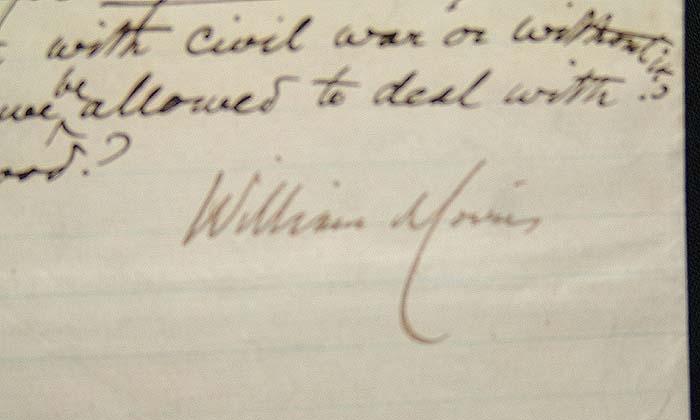 with civil war or without it?
we be allowed to deal with
?
William Morris